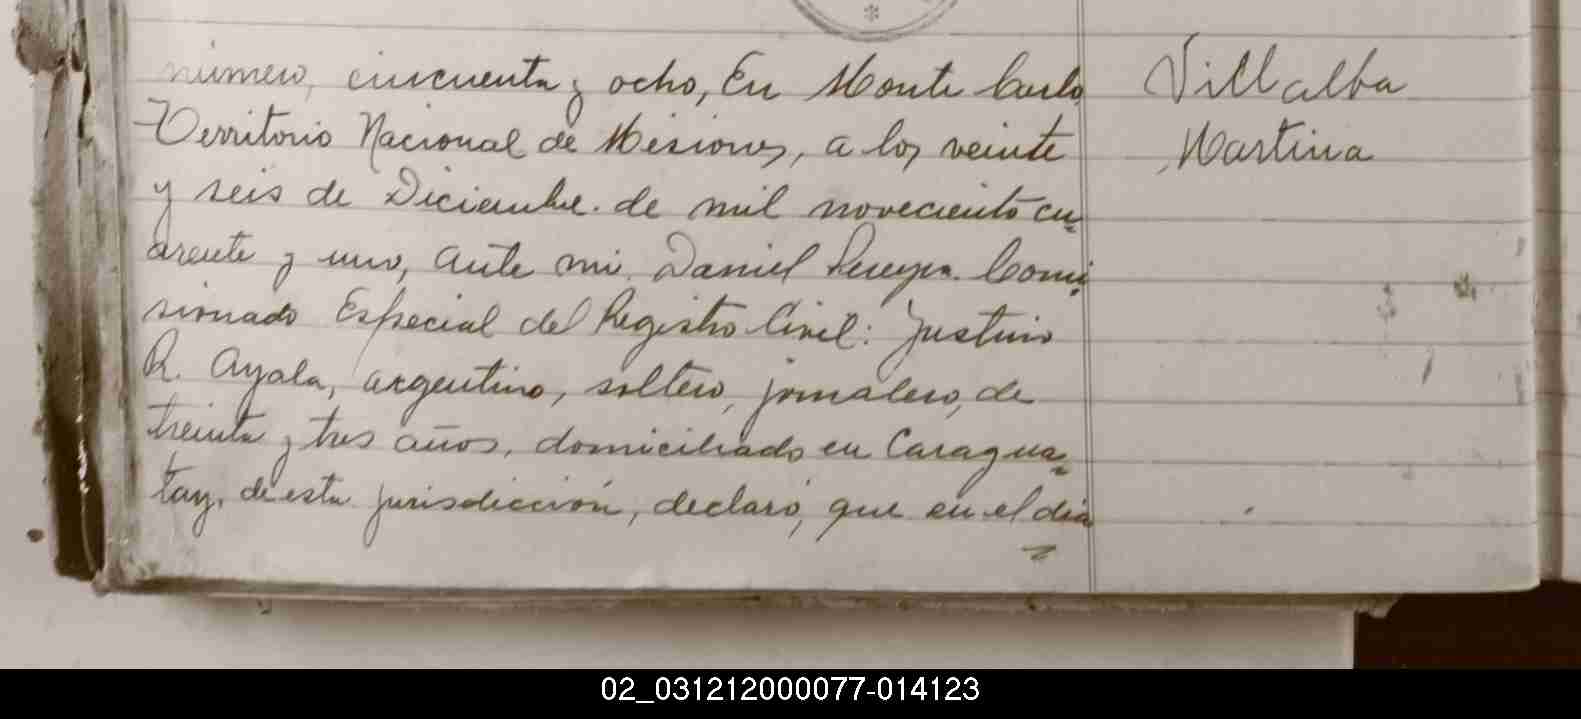 número, cincuenta y ocho, En Monte Carlo
Territorio Nacional de Misiones, a los veinte
y seis de Diciembre. de mil novecientos cu=
arenta y uno, ante mi. Daniel Pereyra. Comi=
sionado Especial del Registro Civil: Justino
R. Ayala, argentino, soltero, jornalero, de
treinta y tres años, domiciliado en Caragua=
tay, de esta jurisdicción, declaró, que en el dia
=
Villalba
Martina
02_031212000077-014123